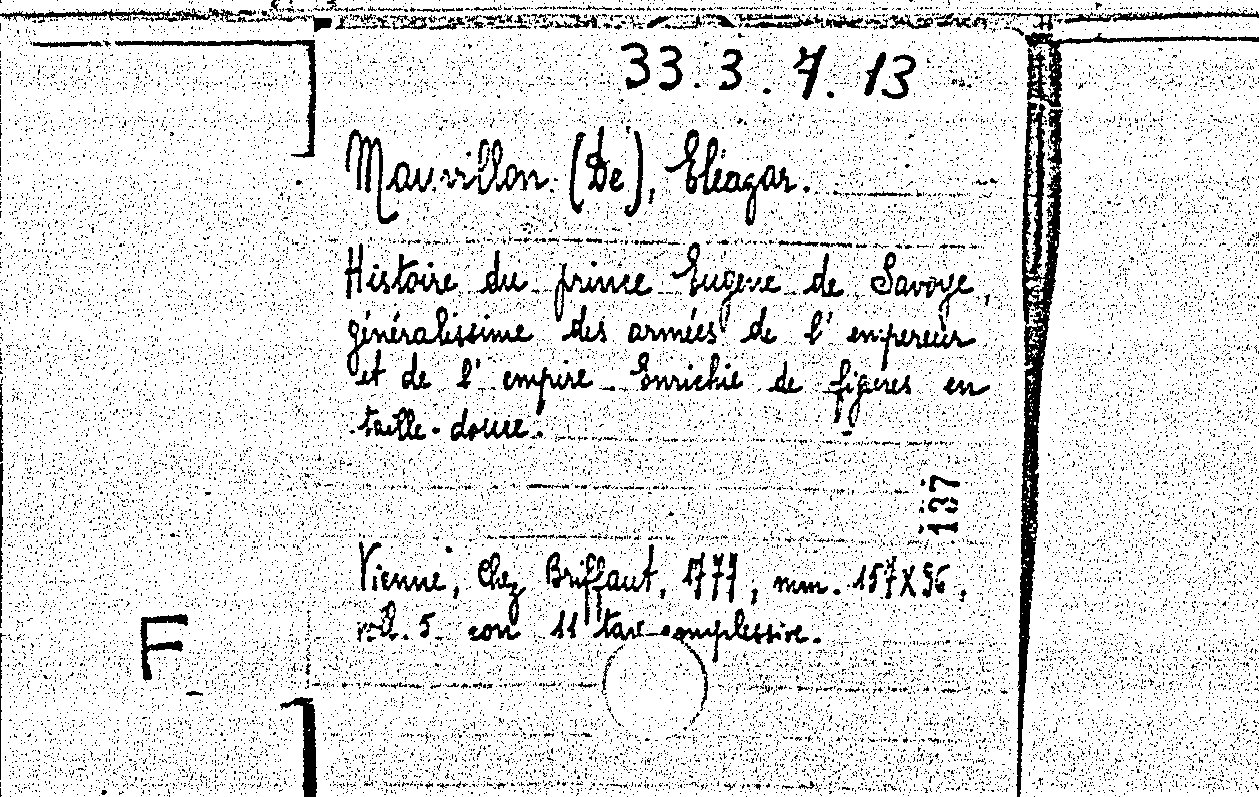 33.3.7.13
Mauvillon (De), Eléazar.
Histoire du prince Eugene de Savoye,
généralissime des armées de l'empereur
et de l'empire Enrichie de figures en
taille-douce.
137
Vienne, Chez Briffaut, 1777, mm. 157X96,
vol. 5 con 11 tav complessive.
F